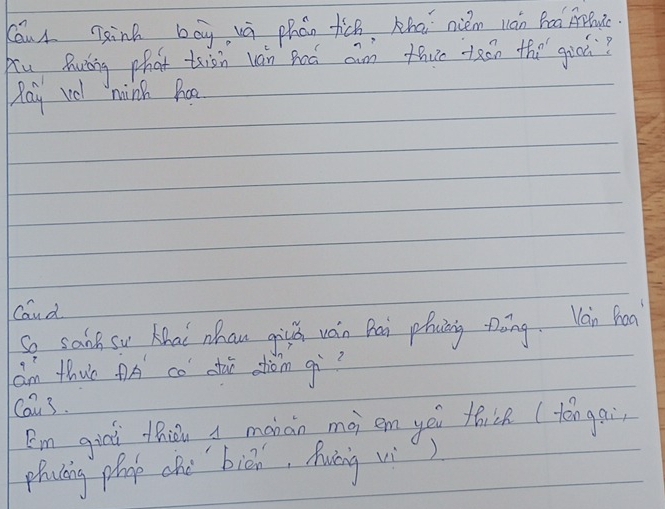 Câu 1 Trình bày và phân tích khái niệm văn hoá ẩm thực.
Xu hướng phát triển văn hoá ẩm thực trên thế giới?
Lấy vd minh hoạ
Câu 2
So sánh sự khác nhau giữa văn hoá phương Đông. Văn hoá
ẩm thực ĐÁ có đặc điểm gì?
Câu 3.
Em giới thiệu 1 món ăn mà em yêu thích (tên gọi,
phương pháp chế biến, hương vị)